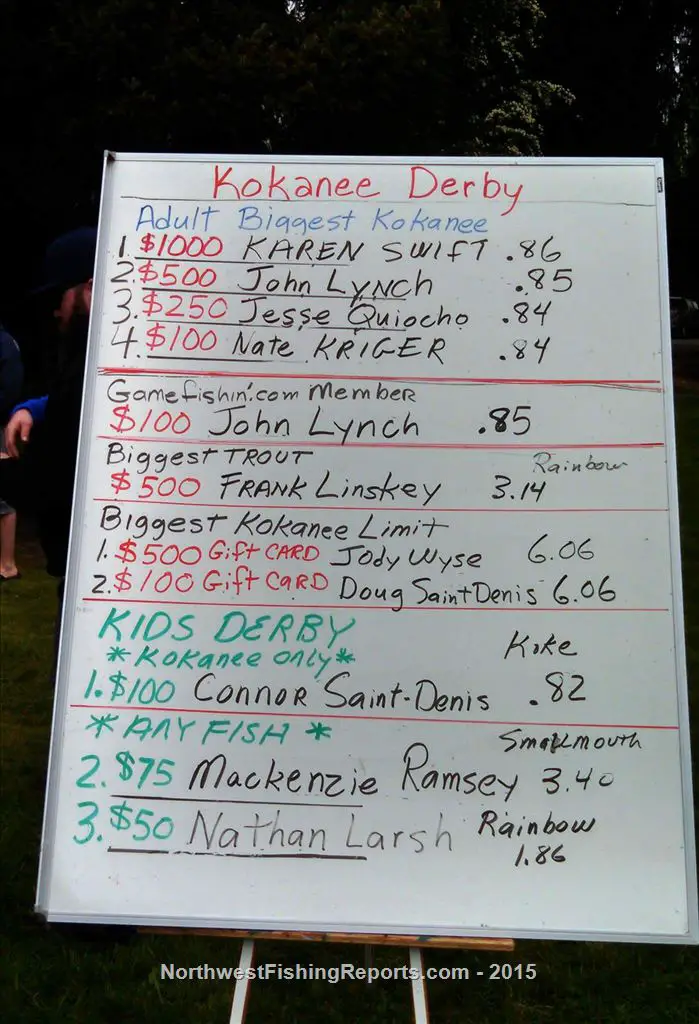 Kokanee Derby
Adult Biggest Kokanee
1. $1000 KAREN SWIFT .86
2. $500 John Lynch .85
3. $250 Jesse Quiocho .84
4. $100 Nate KRIGER .84
Gamefishin'.com Member
$100 John Lynch .85
Biggest TROUT Rainbow
$500 FRANK Linskey 3.14
Biggest Kokanee Limit
1. $500 Gift CARD Jody Wyse 6.06
2. $100 Gift CARD Doug Saint Denis 6.06
KIDS DERBY
*Kokanee only* Koke
1. $100 Connor Saint-Denis .82
* ANY FISH * Smallmouth
2. $75 Mackenzie Ramsey 3.40
3. $50 Nathan Larsh Rainbow
1.86
NorthwestFishingReports.com - 2015